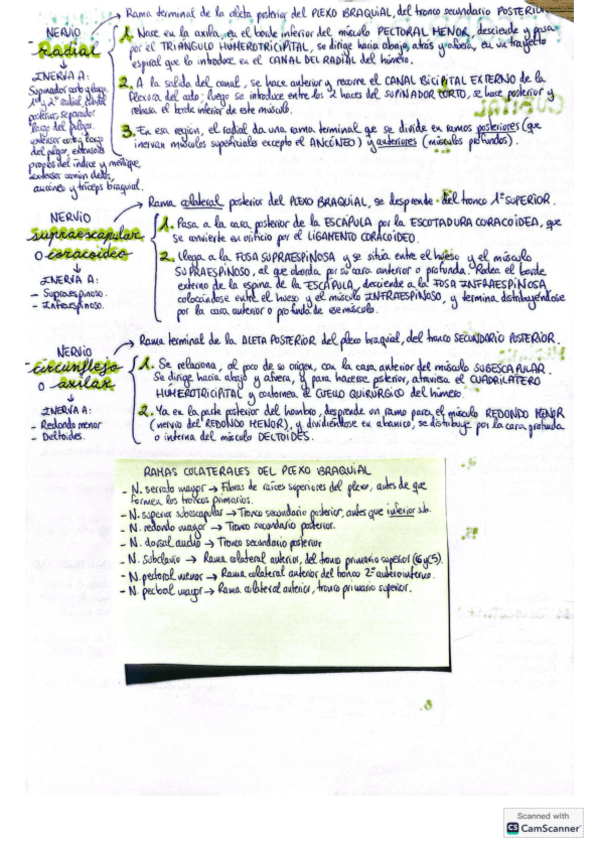 Rama terminal de la aleta posterior del PLEXO BRAQUIAL, del tronco secundario POSTERIOR
NERVIO
Radial
↓
INERVA A:
Supinador corto y largo,
1º y 2º radial, cubital
posterior, separador
largo del pulgar,
extensor corto y largo
del pulgar, extensores
propios del índice y meñique,
extensor común dedos,
ancóneo y tríceps braquial.
1. Nace en la axila, en el borde inferior del músculo PECTORAL MENOR, desciende y pasa
por el TRIÁNGULO HUMEROTRICIPITAL, se dirige hacia abajo, atrás y afuera, en un trayecto
espiral que lo introduce en el CANAL DEL RADIAL del húmero.
2. A la salida del canal, se hace anterior y recorre el CANAL BICIPITAL EXTERNO de la
flexura del codo; luego se introduce entre los 2 haces del SUPINADOR CORTO, se hace posterior y
rebasa el borde inferior de este músculo.
3. En esa región, el radial da una rama terminal que se divide en ramos posteriores (que
inervan músculos superficiales excepto el ANCÓNEO) y anteriores (músculos profundos).
Rama colateral posterior del PLEXO BRAQUIAL, se desprende del tronco 1º SUPERIOR.
NERVIO
supraescapular
o coracoideo
↓
INERVA A:
- Supraespinoso.
- Infraespinoso.
1. Pasa a la cara posterior de la ESCÁPULA por la ESCOTADURA CORACOIDEA, que
se convierte en orificio por el LIGAMENTO CORACOIDEO.
2. Llega a la FOSA SUPRAESPINOSA y se sitúa entre el hueso y el músculo
SUPRAESPINOSO, al que aborda por su cara anterior o profunda. Rodea el borde
externo de la espina de la ESCÁPULA, desciende a la FOSA INFRAESPINOSA
colocándose entre el hueso y el músculo INFRAESPINOSO, y termina distribuyéndose
por la cara anterior o profunda de ese músculo.
Rama terminal de la ALETA POSTERIOR del plexo braquial, del tronco SECUNDARIO POSTERIOR.
NERVIO
circunflejo
o axilar
↓
INERVA A:
- Redondo menor
- Deltoides.
1. Se relaciona, al poco de su origen, con la cara anterior del músculo SUBESCAPULAR.
Se dirige hacia abajo y afuera, y para hacerse posterior, atraviesa el CUADRILÁTERO
HUMEROTRICIPITAL y contornea el CUELLO QUIRÚRGICO del húmero.
2. Ya en la parte posterior del hombro, desprende un ramo para el músculo REDONDO MENOR
(nervio del REDONDO MENOR), y dividiéndose en abanico, se distribuye por la cara profunda
o interna del músculo DELTOIDES.
RAMAS COLATERALES DEL PLEXO BRAQUIAL
- N. serrato mayor → Fibras de raíces superiores del plexo, antes de que
formen los troncos primarios.
- N. superior subescapular → Tronco secundario posterior, antes que inferior sub.
- N. redondo mayor → Tronco secundario posterior.
- N. dorsal ancho → Tronco secundario posterior
- N. subclavio → Rama colateral anterior, del tronco primario superior (C6 y C5).
- N. pectoral menor → Rama colateral anterior del tronco 2º anterointerno.
- N. pectoral mayor → Rama colateral anterior, tronco primario superior.
Scanned with
CS CamScanner